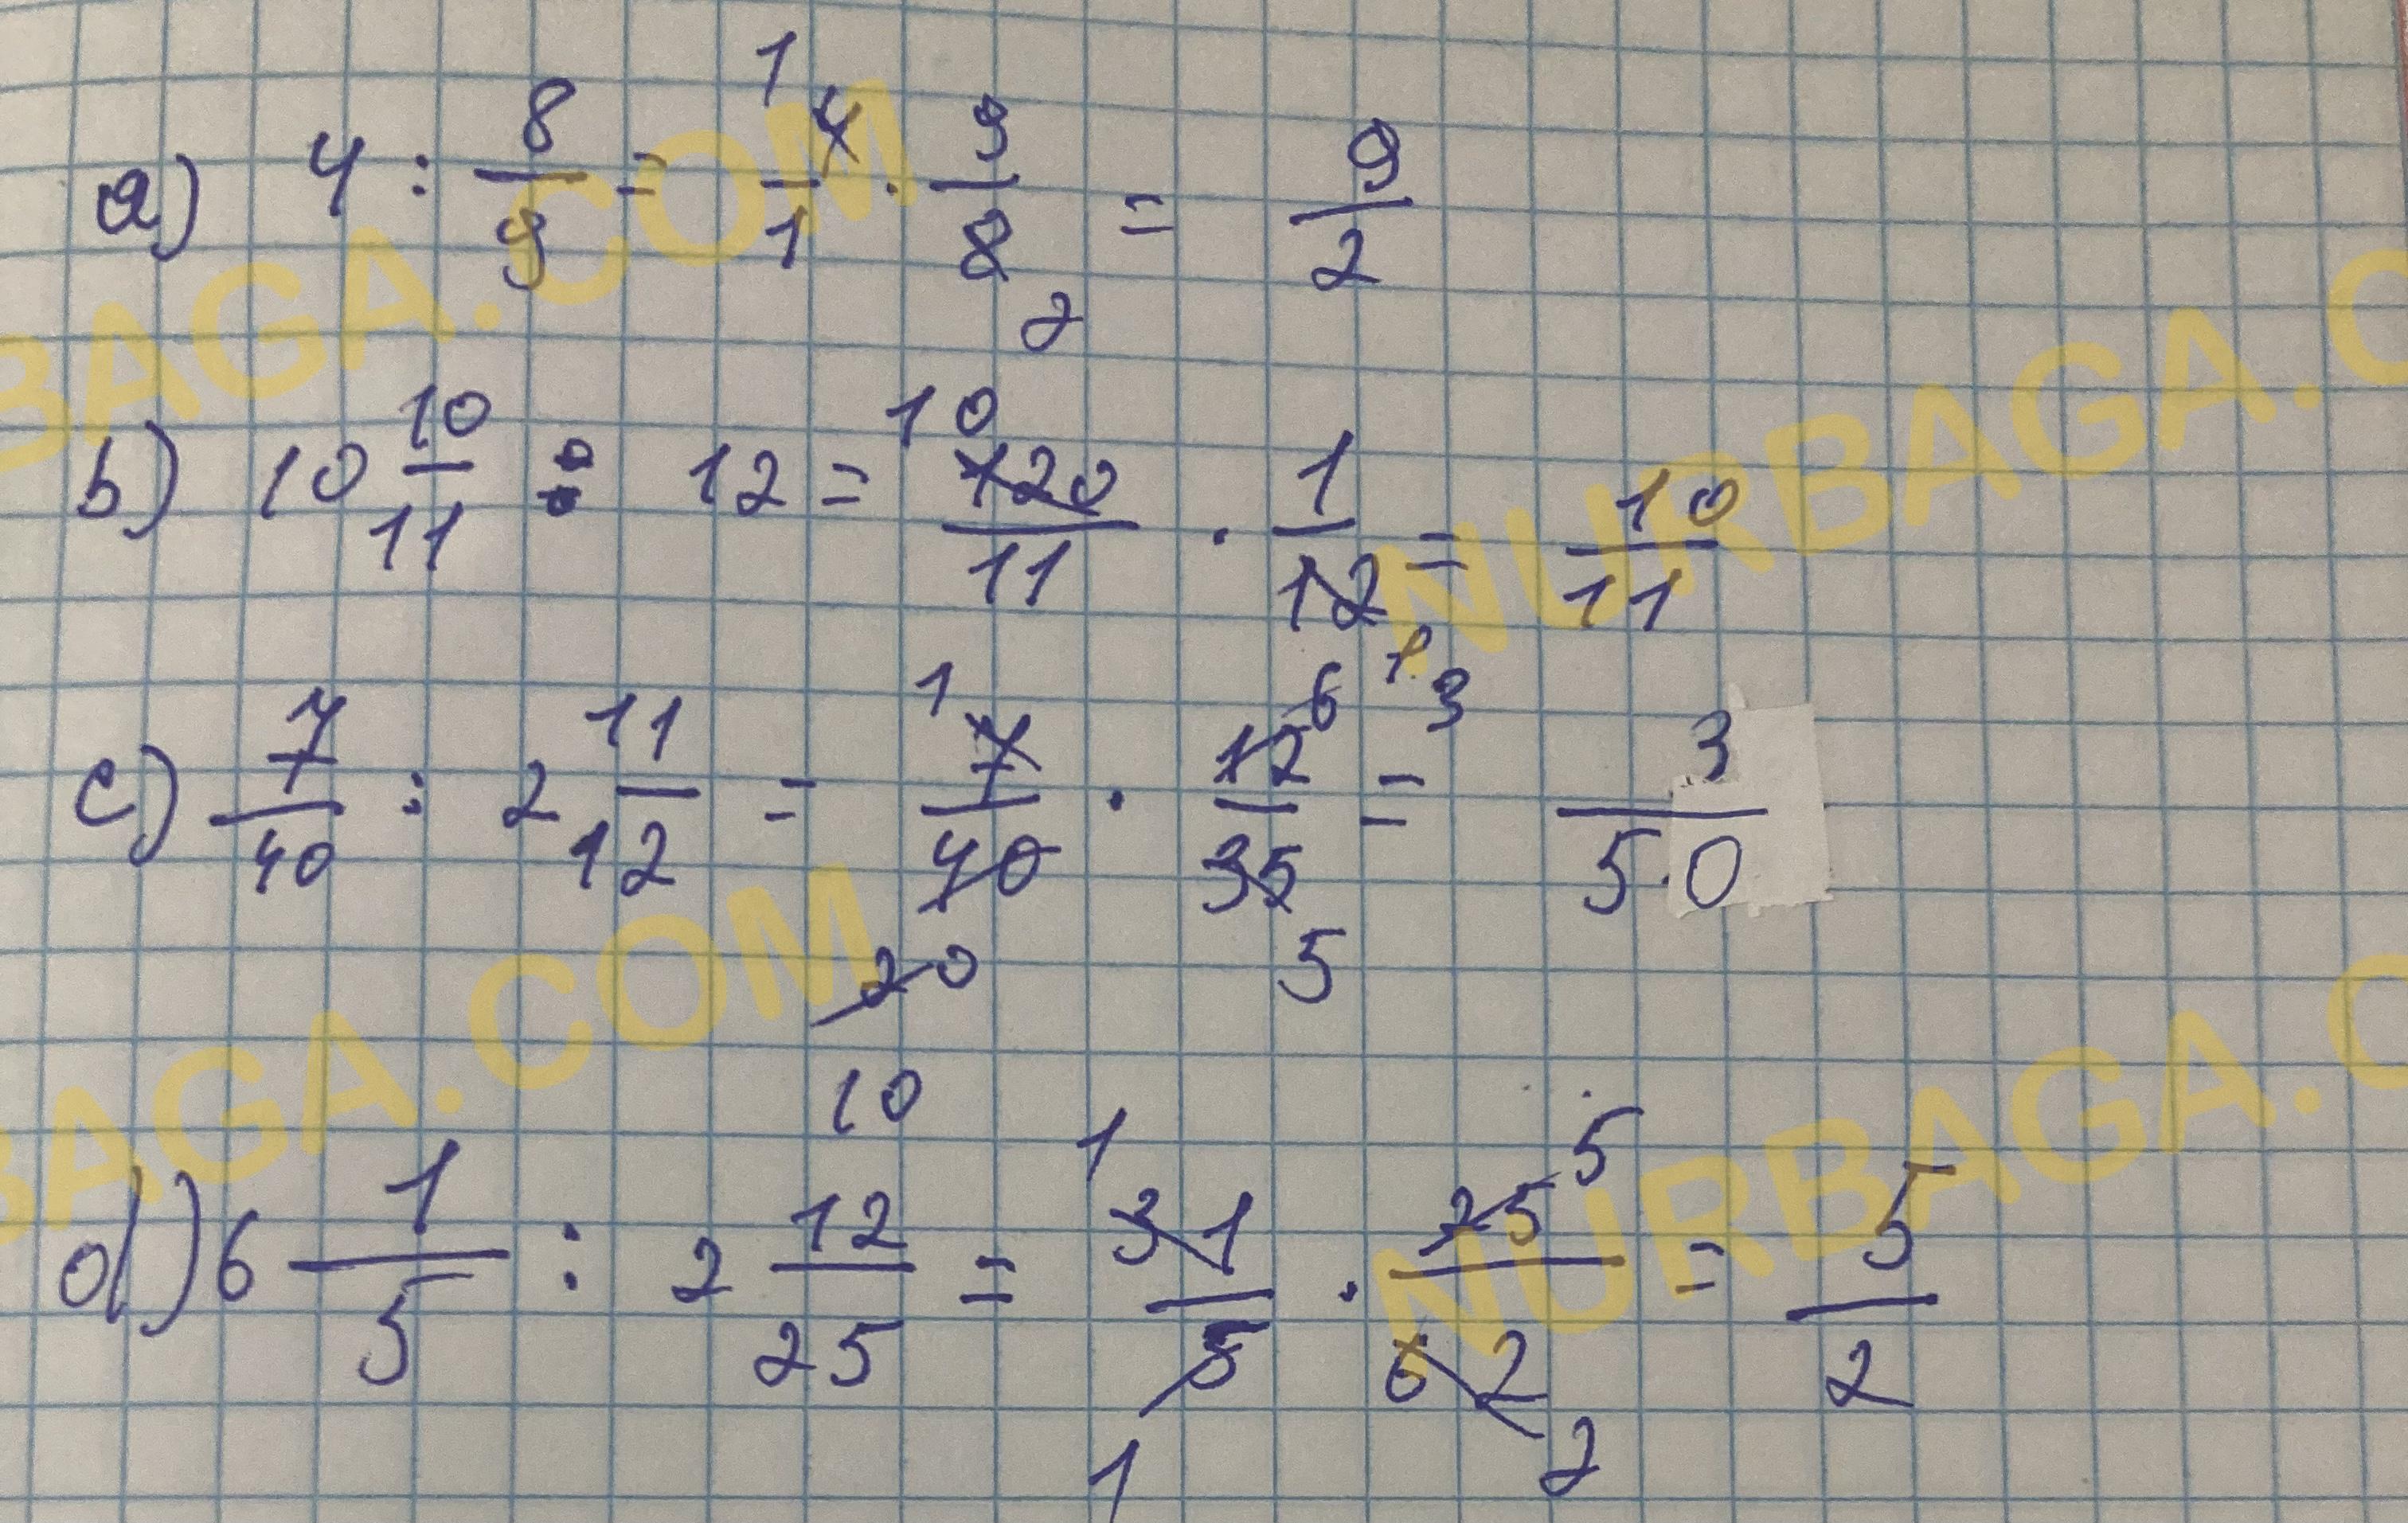 a) 4 : 8/9 = 1 4/1 · 9/8 2 = 9/2
b) 10 10/11 : 12 = 10 120/11 · 1/12 1 = 10/11
c) 7/40 : 2 11/12 = 1 7/40 20 10 · 12 6 3/35 5 = 3/50
d) 6 1/5 : 2 12/25 = 1 31/5 1 · 25 5/62 2 = 5/2
NURBAGA.COM